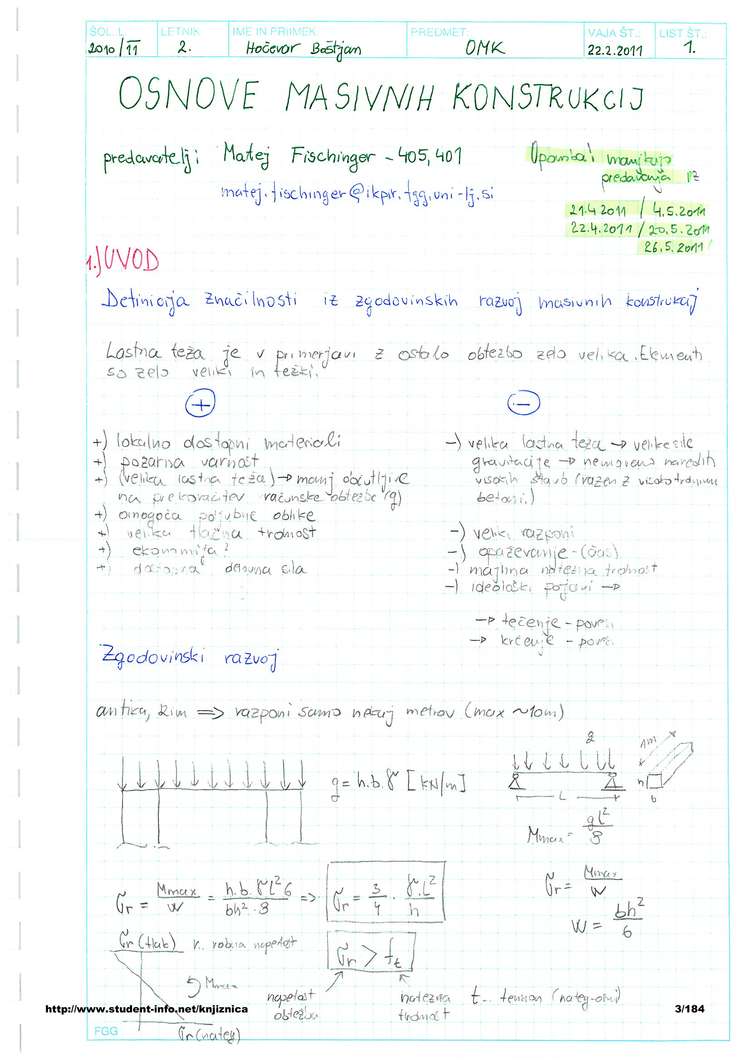 ŠOL. L. LETNIK IME IN PRIIMEK PREDMET: VAJA ŠT.: LIST ŠT.:
2010/11 2. Hočevar Boštjan OMK 22.2.2011 1.
OSNOVE MASIVNIH KONSTRUKCIJ
predavatelj: Matej Fischinger - 405, 401
matej.fischinger@ikpir.fgg.uni-lj.si
Opomba: manjkajo
predavanja iz
21.4.2011 / 4.5.2011
22.4.2011 / 20.5.2011
26.5.2011
1.) UVOD
Definicija značilnosti iz zgodovinskih razvoj masivnih konstrukcij
Lastna teža je v primerjavi z ostalo obtežbo zelo velika. Elementi
so zelo veliki in težki.
+
+) lokalno dostopni materiali
+) požarna varnost
+) (velika lastna teža) → manj občutljive
na prekoračitev računske obtežbe (g)
+) omogoča poljubne oblike
+) velika tlačna trdnost
+) ekonomija?
+) delovna sila
-
-) velika lastna teža → velike sile
gravitacije → nemoremo narediti
visokih stavb (razen z visokotrdnim
betoni.)
-) veliki razponi
-) opaževanje - (čas)
-) majhna natezna trdnost
-) ideološki pojavi →
→ tečenje - pove.
→ krčenje - pove.
Zgodovinski razvoj
antika, Rim ⇒ razponi samo nekaj metrov (max ~10m)
g = h.b.γ [kN/m]
g
L
1m
h
b
Mmax = gL²/8
σr = Mmax/W = h.b.γL²6/bh²·8 ⇒ σr = 3/4 · γ.L²/h
σr = Mmax/W
W = bh²/6
σr (tlak) r. robna napetost
σr > ft
Mmax
napetost
obtežbe
natezna
trdnost
t... tension (nateg-osni)
σr (nateg)
http://www.student-info.net/knjiznica
3/184
FGG